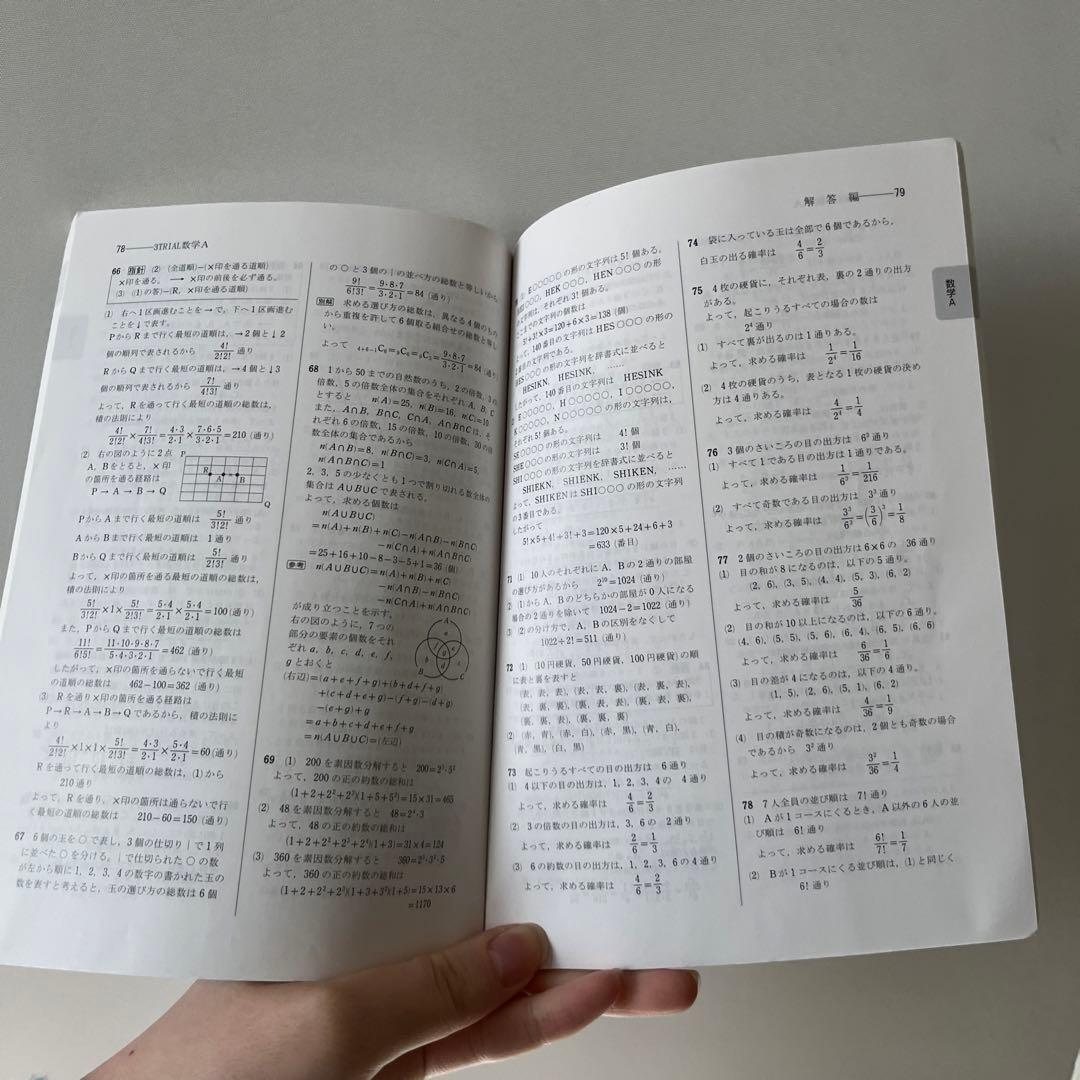 78——3TRIAL数学A
66 指針 (2) (全道順)−(×印を通る道順)
×印を通る。 → ×印の前後を必ず通る。
(3) ((1)の答)−(R, ×印を通る道順)
(1) 右へ1区画進むことを → で, 下へ1区画進む
ことを ↓ で表す。
PからRまで行く最短の道順は, →2個と↓2
個の順列で表されるから 4!/2!2! 通り
RからQまで行く最短の道順は, →4個と↓3
個の順列で表されるから 7!/4!3! 通り
よって, Rを通って行く最短の道順の総数は,
積の法則により
4!/2!2!×7!/4!3!=4・3/2・1×7・6・5/3・2・1=210 (通り)
(2) 右の図のように2点
A, Bをとると, ×印
の箇所を通る経路は
P→A→B→Q
P
R
A
B
Q
PからAまで行く最短の道順は 5!/3!2! 通り
AからBまで行く最短の道順は 1通り
BからQまで行く最短の道順は 5!/2!3! 通り
よって, ×印の箇所を通る最短の道順の総数は,
積の法則により
5!/3!2!×1×5!/2!3!=5・4/2・1×5・4/2・1=100 (通り)
また, PからQまで行く最短の道順の総数は
11!/6!5!=11・10・9・8・7/5・4・3・2・1=462 (通り)
したがって, ×印の箇所を通らないで行く最短
の道順の総数は 462−100=362 (通り)
(3) Rを通り×印の箇所を通る経路は
P→R→A→B→Qであるから, 積の法則に
より
4!/2!2!×1×1×5!/2!3!=4・3/2・1×5・4/2・1=60 (通り)
Rを通って行く最短の道順の総数は, (1)から
210通り
よって, Rを通り, ×印の箇所は通らないで行
く最短の道順の総数は 210−60=150 (通り)
67 6個の玉を○で表し, 3個の仕切り | で1列
に並べた○を分ける。| で仕切られた○の数
が左から順に1, 2, 3, 4の数字の書かれた玉の
数を表すと考えると, 玉の選び方の総数は6個
の○と3個の | の並べ方の総数と等しいから
9!/6!3!=9・8・7/3・2・1=84 (通り)
別解 求める選び方の総数は, 異なる4個のもの
から重複を許して6個取る組合せの総数と等し
い
よって ₄₊₆₋₁C₆=₉C₆=₉C₃=9・8・7/3・2・1=84 (通り)
68 1から50までの自然数のうち, 2の倍数, 3の
倍数, 5の倍数全体の集合をそれぞれA, B, C
とすると n(A)=25, n(B)=16, n(C)=10
また, A∩B, B∩C, C∩A, A∩B∩Cは, そ
れぞれ6の倍数, 15の倍数, 10の倍数, 30の倍
数全体の集合であるから
n(A∩B)=8, n(B∩C)=3, n(C∩A)=5,
n(A∩B∩C)=1
2, 3, 5の少なくとも1つで割り切れる数全体の
集合はA∪B∪Cで表される。
よって, 求める個数は
n(A∪B∪C)
=n(A)+n(B)+n(C)−n(A∩B)−n(B∩C)
−n(C∩A)+n(A∩B∩C)
=25+16+10−8−3−5+1=36 (個)
参考 n(A∪B∪C)=n(A)+n(B)+n(C)
−n(A∩B)−n(B∩C)
−n(C∩A)+n(A∩B∩C)
が成り立つことを示す。
右の図のように, 7つの
部分の要素の個数をそれ
ぞれ a, b, c, d, e, f,
g とおくと
(右辺)=(a+e+f+g)+(b+d+f+g)
+(c+d+e+g)−(f+g)−(d+g)
−(e+g)+g
=a+b+c+d+e+f+g
=n(A∪B∪C)=(左辺)
69 (1) 200を素因数分解すると 200=2³・5²
よって, 200の正の約数の総和は
(1+2+2²+2³)(1+5+5²)=15×31=465
(2) 48を素因数分解すると 48=2⁴・3
よって, 48の正の約数の総和は
(1+2+2²+2³+2⁴)(1+3)=31×4=124
(3) 360を素因数分解すると 360=2³・3²・5
よって, 360の正の約数の総和は
(1+2+2²+2³)(1+3+3²)(1+5)=15×13×6
=1170
解答編——79
数学A
E○○○○○ の形の文字列は5! 個ある。
HEK○○○, HEN○○○ の形
は, それぞれ3! 個ある。
までの文字列の個数は
5!+3!×3=120+6×3=138 (個)
よって, 140番目の文字列は HES○○○ の形の
2番目の文字列である。
HES○○○ の形の文字列を辞書式に並べると
HESIKN, HESINK, ……
したがって, 140番目の文字列は HESINK
E○○○○○, H○○○○○, I○○○○○,
K○○○○○, N○○○○○ の形の文字列は,
それぞれ5! 個ある。
SE○○○○ の形の文字列は 4! 個
SHE○○○ の形の文字列は 3! 個
SHI○○○ の形の文字列を辞書式に並べると
SHIEKN, SHIENK, SHIKEN, ……
よって, SHIKENはSHI○○○ の形の文字列
の3番目である。
したがって
5!×5+4!+3!+3=120×5+24+6+3
=633 (番目)
71 (1) 10人のそれぞれにA, Bの2通りの部屋
の選び方があるから 2¹⁰=1024 (通り)
(2) (1)からA, Bのどちらかの部屋が0人になる
場合の2通りを除いて 1024−2=1022 (通り)
(3) (2)の分け方で, A, Bの区別をなくして
1022÷2!=511 (通り)
72 (1) (10円硬貨, 50円硬貨, 100円硬貨) の順
に表と裏を表すと
(表, 表, 表), (表, 表, 裏), (表, 裏, 表),
(表, 裏, 裏), (裏, 表, 表), (裏, 表, 裏),
(裏, 裏, 表), (裏, 裏, 裏)
(2) (赤, 青), (赤, 白), (赤, 黒), (青, 白),
(青, 黒), (白, 黒)
73 起こりうるすべての目の出方は 6通り
(1) 4以下の目の出方は, 1, 2, 3, 4の 4通り
よって, 求める確率は 4/6=2/3
(2) 3の倍数の目の出方は, 3, 6の 2通り
よって, 求める確率は 2/6=1/3
(3) 6の約数の目の出方は, 1, 2, 3, 6の4通り
よって, 求める確率は 4/6=2/3
74 袋に入っている玉は全部で6個であるから,
白玉の出る確率は 4/6=2/3
75 4枚の硬貨に, それぞれ表, 裏の2通りの出方
がある。
よって, 起こりうるすべての場合の数は
2⁴通り
(1) すべて裏が出るのは1通りある。
よって, 求める確率は 1/2⁴=1/16
(2) 4枚の硬貨のうち, 表となる1枚の硬貨の決め
方は4通りある。
よって, 求める確率は 4/2⁴=1/4
76 3個のさいころの目の出方は 6³通り
(1) すべて1である目の出方は1通りである。
よって, 求める確率は 1/6³=1/216
(2) すべて奇数である目の出方は 3³通り
よって, 求める確率は 3³/6³=(3/6)³=1/8
77 2個のさいころの目の出方は6×6の 36通り
(1) 目の和が8になるのは, 以下の5通り。
(2, 6), (3, 5), (4, 4), (5, 3), (6, 2)
よって, 求める確率は 5/36
(2) 目の和が10以上になるのは, 以下の6通り。
(4, 6), (5, 5), (5, 6), (6, 4), (6, 5), (6, 6)
よって, 求める確率は 6/36=1/6
(3) 目の差が4になるのは, 以下の4通り。
(1, 5), (2, 6), (5, 1), (6, 2)
よって, 求める確率は 4/36=1/9
(4) 目の積が奇数になるのは, 2個とも奇数の場合
であるから 3²通り
よって, 求める確率は 3²/36=1/4
78 7人全員の並び順は 7! 通り
(1) Aが1コースにくるとき, A以外の6人の並
び順は 6! 通り
よって, 求める確率は 6!/7!=1/7
(2) Bが1コースにくる並び順は, (1)と同じく
6! 通り